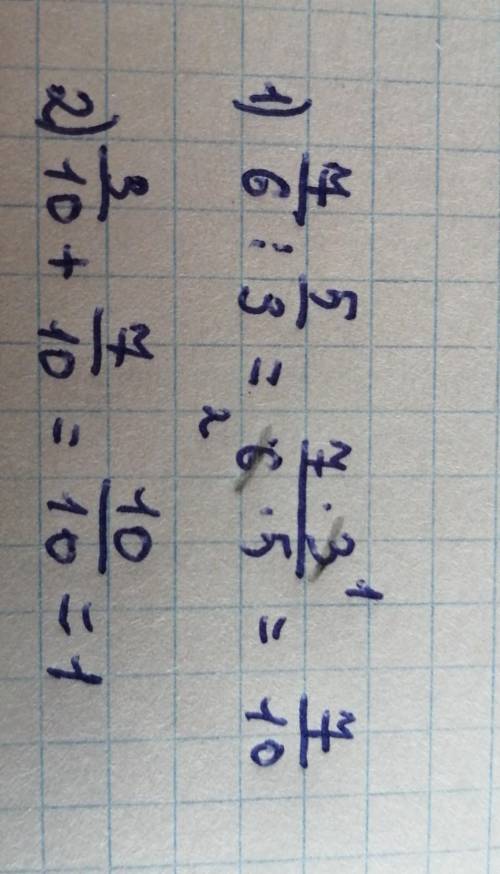 1) 7/6 : 5/3 = 7·3 1/2 6·5 = 7/10
2) 3/10 + 7/10 = 10/10 = 1